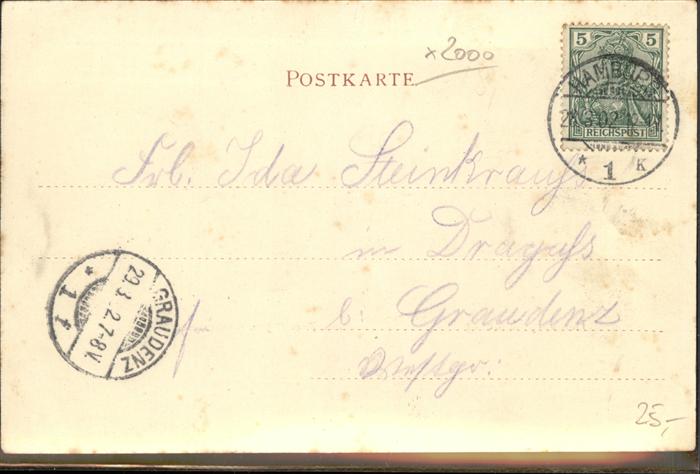 x2000
POSTKARTE
5 5
REICHSPOST
HAMBURG
3.02
* 1 K
Frl. Ida Steinkrauß
in Dragaß
b: Graudenz
Westpr:
GRAUDENZ
29.3.2.7-8V.
* 1 f
25,-